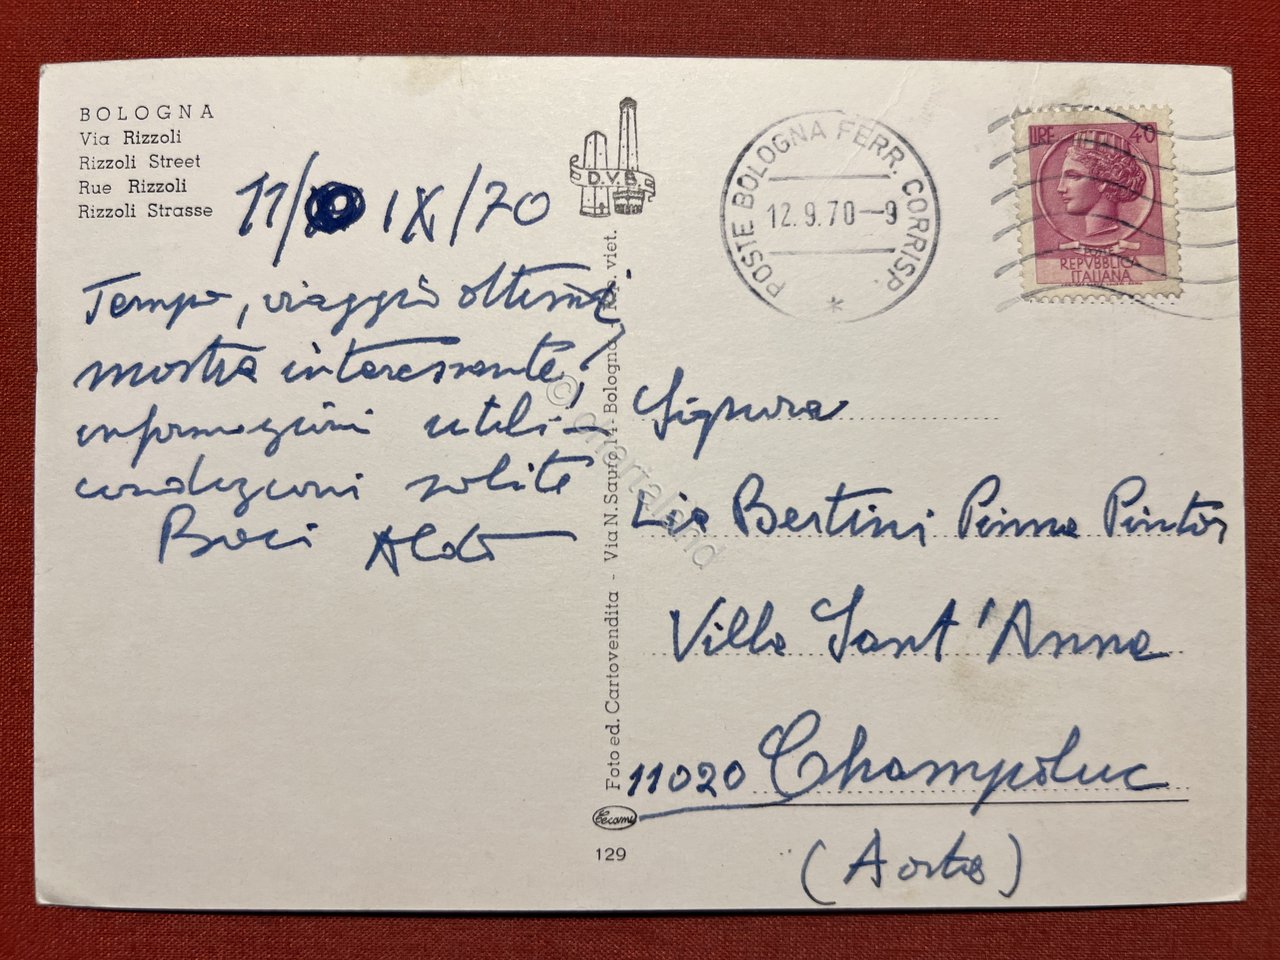 BOLOGNA
Via Rizzoli
Rizzoli Street
Rue Rizzoli
Rizzoli Strasse
11/ IX/70
Tempo, viaggio ottimi,
mostra interessante,
informazioni utili -
condizioni solite
Baci Aldo
D.V.B.
Foto ed. Cartovendita - Via N. Sauro, 14 - Bologna - Rip. viet.
Tecami
129
POSTE BOLOGNA FERR. CORRISP.
12.9.70--9
*
LIRE 40
ITALIA
POSTE
REPVBBLICA
ITALIANA
Signora
Lia Bertini Pinna Pintor
Villa Sant'Anna
11020 Champoluc
(Aosta)
© chartaland